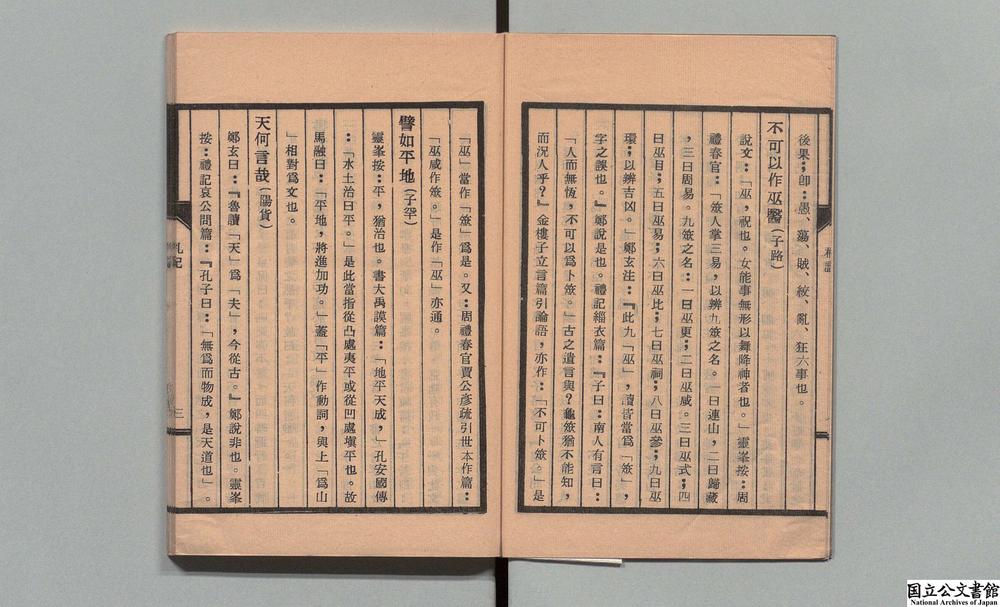 後果；卽：愚、蕩、賊、絞、亂、狂六事也。
不可以作巫醫（子路）
說文：「巫，祝也。女能事無形以舞降神者也。」靈峯按：周
禮春官：「簭人掌三易，以辨九簭之名。一曰連山，二曰歸藏
，三曰周易。九簭之名：一曰巫更；二曰巫咸。三曰巫式；四
曰巫目；五曰巫易；六曰巫比；七曰巫祠；八曰巫參；九曰巫
環；以辨吉凶。」鄭玄注：『此九「巫」，讀皆當爲「筮」，
字之誤也。』鄭說是也。禮記緇衣篇：『子曰：南人有言曰：
「人而無恆，不可以爲卜筮。」古之遺言與？龜筮猶不能知，
而況人乎？』金樓子立言篇引論語，亦作：「不可卜筮。」是
「巫」當作「筮」爲是。又：周禮春官賈公彥疏引世本作篇：
「巫咸作筮。」是作「巫」亦通。
譬如平地（子罕）
靈峯按：平，猶治也。書大禹謨篇：「地平天成，」孔安國傳
：「水土治曰平。」是此當指從凸處夷平或從凹處塡平也。故
馬融曰：「平地，將進加功。」蓋「平」作動詞，與上「爲山
」相對爲文也。
天何言哉（陽貨）
鄭玄曰：『魯讀「天」爲「夫」，今從古。』鄭說非也。靈峯
按：禮記哀公問篇：『孔子曰：「無爲而物成，是天道也」。
札記
三
国立公文書館
National Archives of Japan